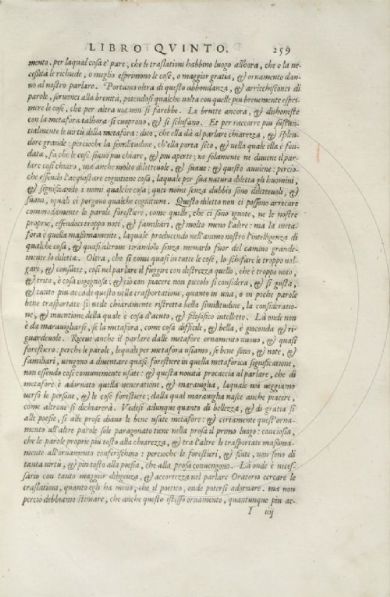 LIBRO QVINTO. 259
mento, per laqual cosa è pare, che le traslationi habbino luogo allhora, che o la ne-
cessità le richiede, o meglio esprimono le cose, o maggior gratia, & ornamento dan-
no al nostro parlare. Portano oltra di questo abbondanza, & arricchiscono di
parole, seruono alla breuità, potendosi qualche uolta con quelle piu breuemente espri-
mere le cose, che per altra uia non si farebbe. Le brutte ancora, & dishoneste
con la metafora talhora si cuoprono, & si schifano. Et per raccorre piu sustan-
tialmente le uirtù della metafora: dico, che ella dà al parlare chiarezza, & splen-
dore grande: percioche la similitudine, ch'ella porta seco, & nella quale ella è fon-
data, fa che le cose siano piu chiare, & piu aperte: ne solamente ne diuiene il par-
lare cosi chiaro, ma anche molto diletteuole, & suaue: & questo auuiene: percio-
che essendo l'acquistare cognitione cosa, laquale per sua natura diletta gli huomini,
& significando i nomi qualche cosa: que' nomi senza dubbio sono diletteuoli, &
suaui, i quali ci porgono cognitione. Questo diletto non ci possono arrecare
commodamente le parole forestiere, come quelle, che ci sono ignote, ne le nostre
proprie, essendoci troppo note, & famigliari, & molto meno l'altre: ma la meta-
fora è quella massimamente, laquale traducendo nell'animo nostro l'intelligenza di
qualche cosa, & quasi altroue tirandolo senza menarlo fuor del camino grande-
mente lo diletta. Oltra, che si come quasi in tutte le cose, lo schifare le troppo uul-
gari, & consuete, cosi nel parlare il fuggire con destrezza quello, che è troppo noto,
& trito, è cosa ingegnosa: & ciò con piacere non piccolo si considera, & si gusta,
& tanto piu accade questo nella trasportatione, quanto in una, o in poche parole
bene trasportate si uede chiaramente ristretta bella similitudine, la consideratio-
ne, & inuentione della quale è cosa d'acuto, & filosofico intelletto. Là onde non
è da marauigliarsi, se la metafora, come cosa difficile, & bella, è gioconda & ri-
guardeuole. Riceue anche il parlare dalle metafore ornamento nuouo, & quasi
forestiero: perche le parole, lequali per metafora usiamo, se bene sono, & note, &
famigliari, uengono a diuentare quasi forestiere in quella metaforica significatione,
non essendo cosi comunemente usate: & questa nouità procaccia al parlare, che di
metafore è adornato quella ueneratione, & marauiglia, laquale noi ueggiamo
uerso le persone, & le cose forestiere; dalla qual marauiglia nasce anche piacere,
come altroue si dichiarerà. Vedesi adunque quanto di bellezza, & di gratia si
alle poesie, si alle prose diano le bene usate metafore: & certamente quest'orna-
mento all'altre parole sole paragonato tiene nella prosa il primo luogo: conciosia,
che le parole proprie piu tosto alla chiarezza, & tra l'altre le trasportate massima-
mente all'ornamento conferischino: percioche le forestieri, & finte, non sono di
tanta uirtù, & piu tosto alla poesia, che alla prosa conuengono. Là onde è neces-
sario con tanto maggior diligenza, & accortezza nel parlare Oratorio cercare le
traslationi, quanto egli ha meno, che il poetico, onde potersi adornare. ma non
percio debbiamo stimare, che anche questo istesso ornamento, quantunque piu ac-
I iiij